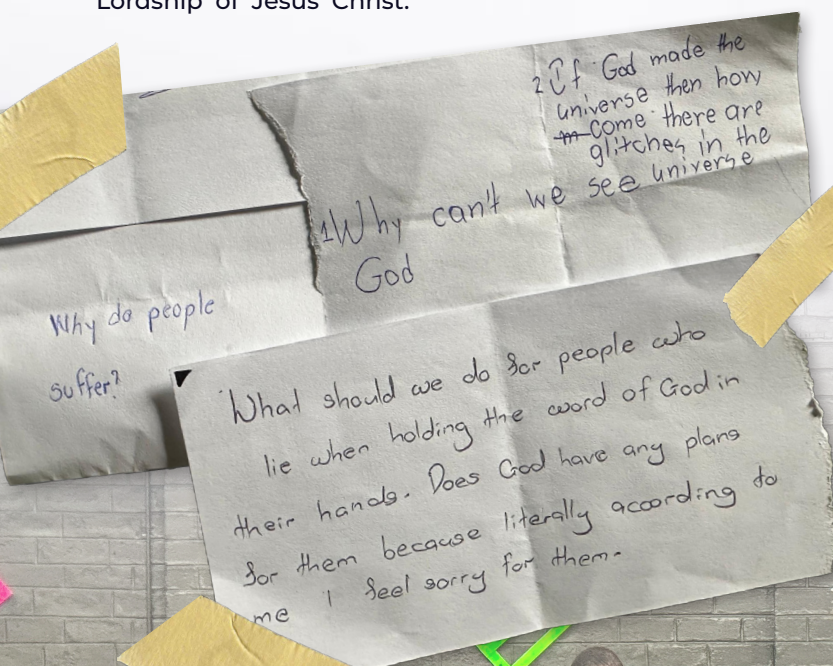 Lordship of Jesus Christ.
2 If God made the
universe then how
come there are
glitches in the
universe
1 Why can't we see
God
Why do people
suffer?
What should we do for people who
lie when holding the word of God in
their hands. Does God have any plans
for them because literally acoording to
me I feel sorry for them.